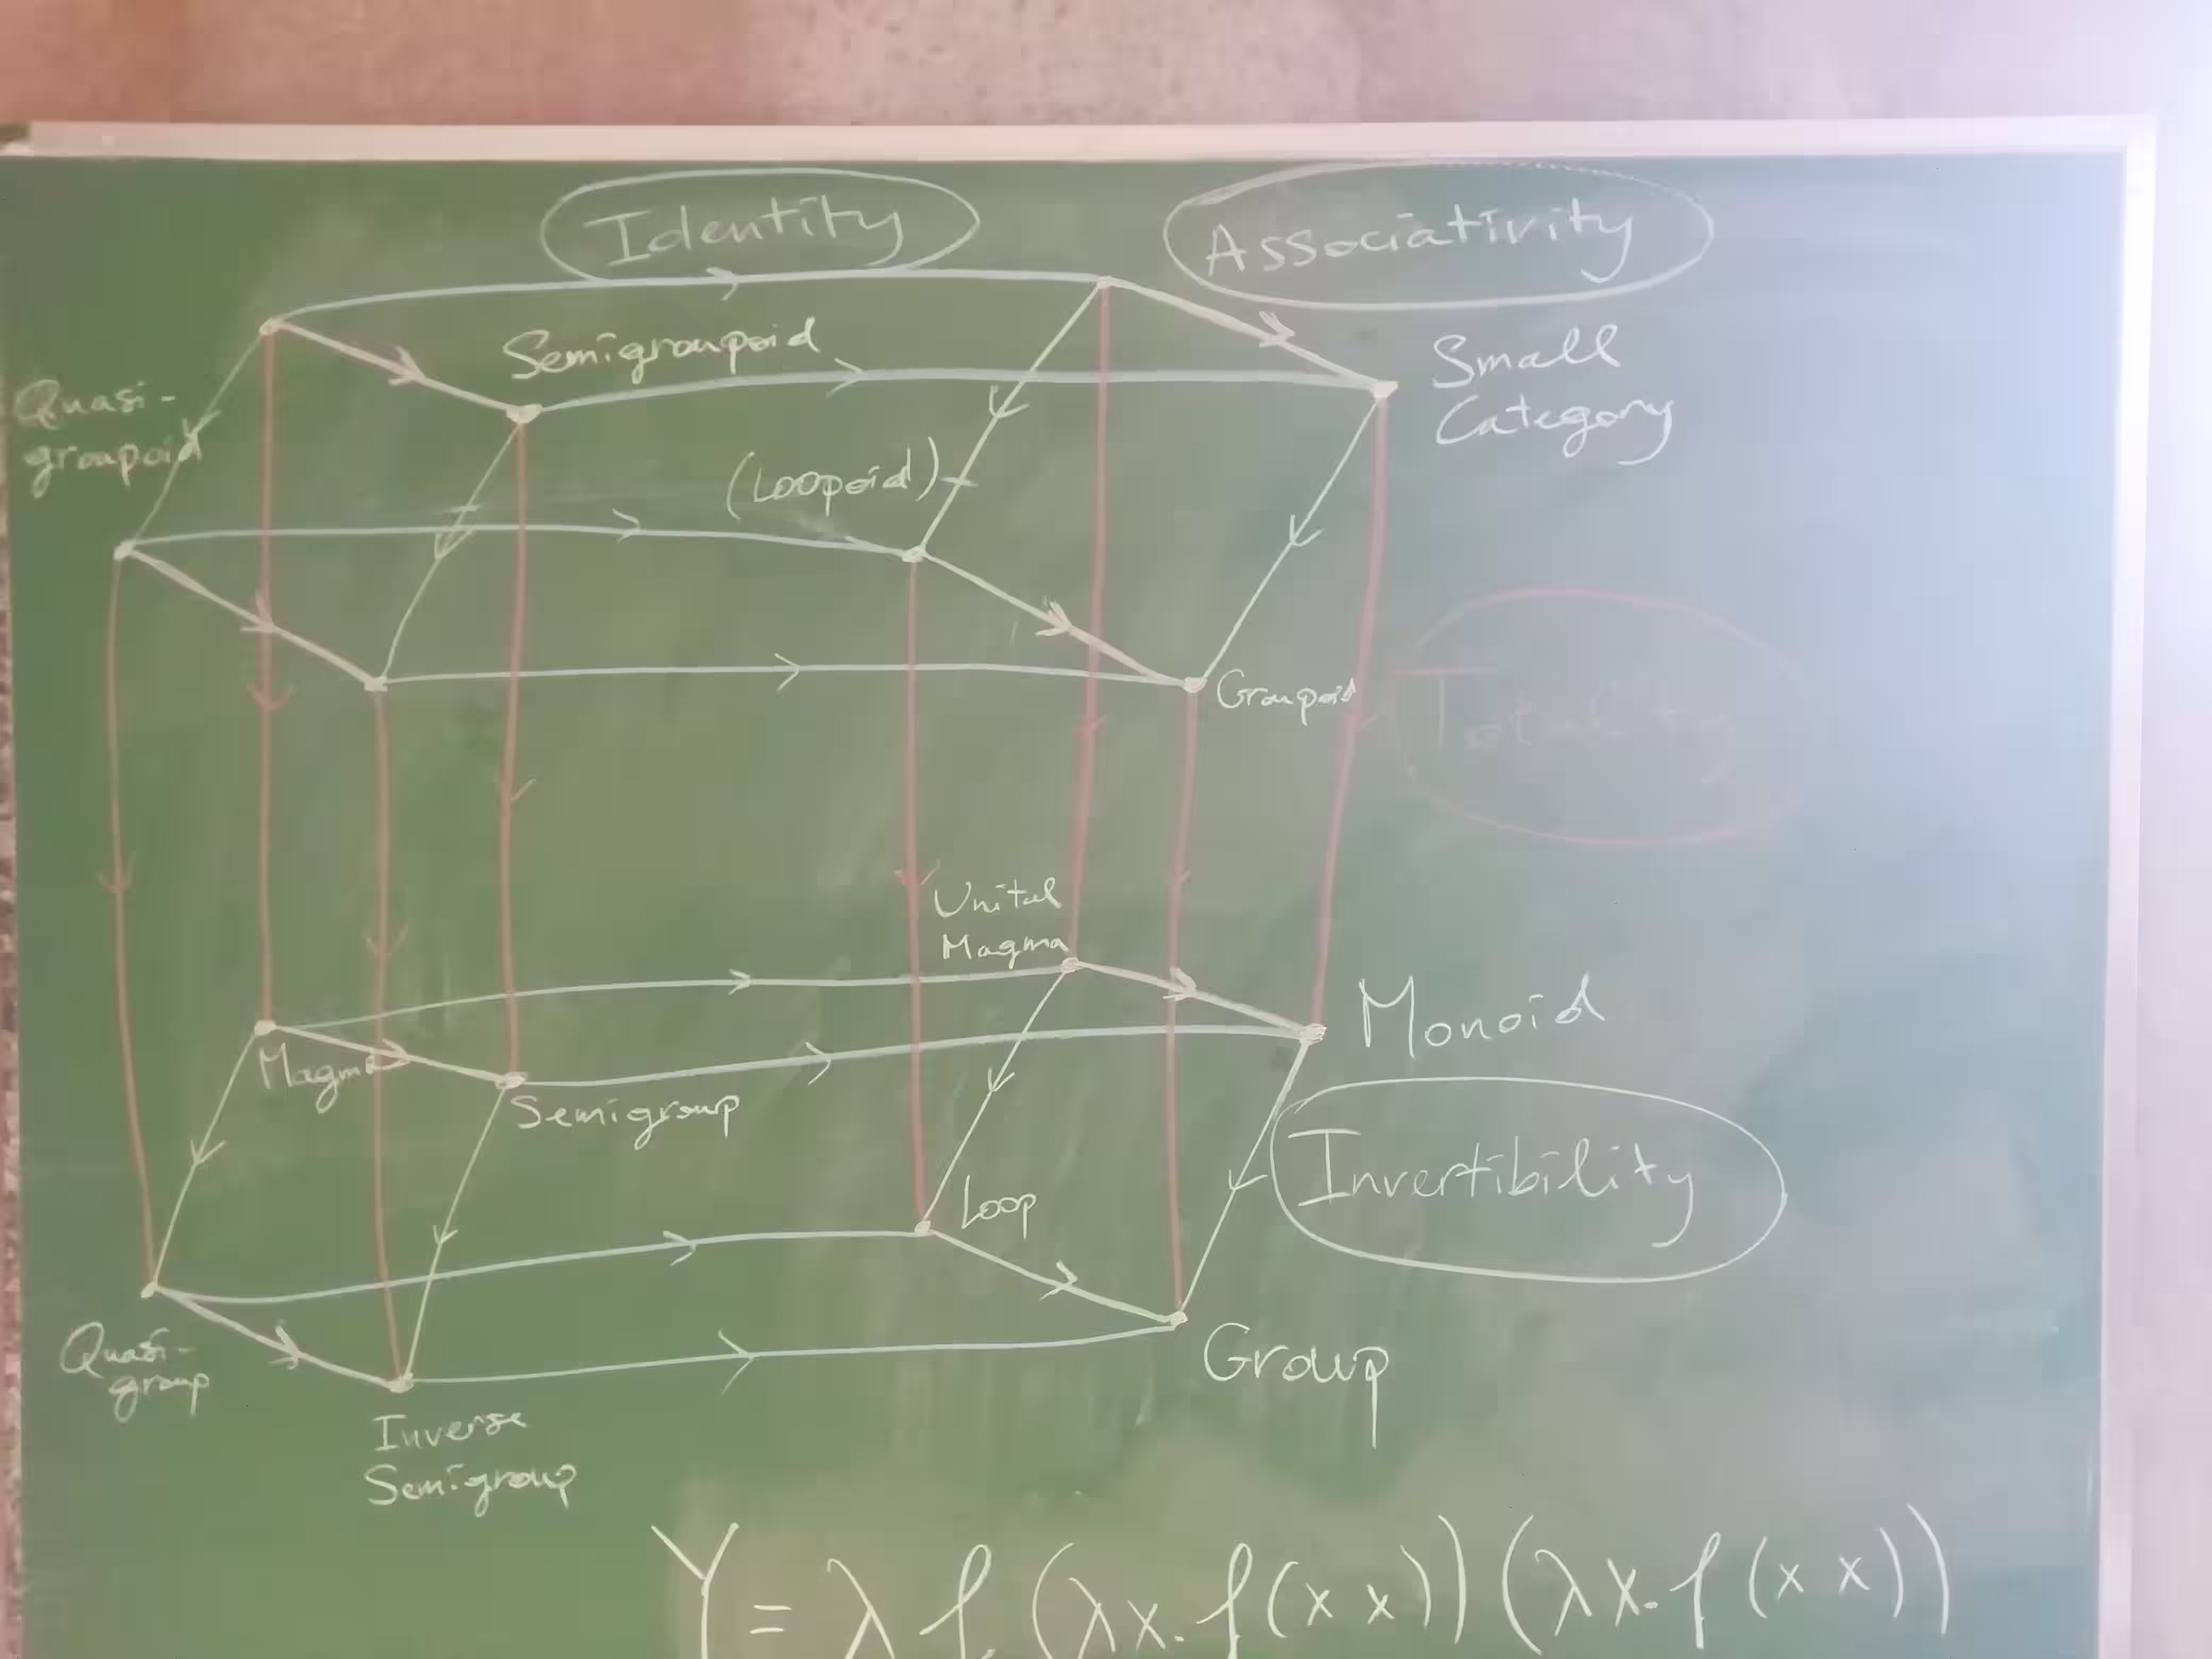 Identity
Associativity
Semigroupoid
Small
Category
Quasi-
groupoid
(Loopoid)
Groupoid
Totality
Unital
Magma
Monoid
Magma
Semigroup
Invertibility
Loop
Quasi-
group
Group
Inverse
Semigroup
Y = λf.(λx.f(x x))(λx.f(x x))